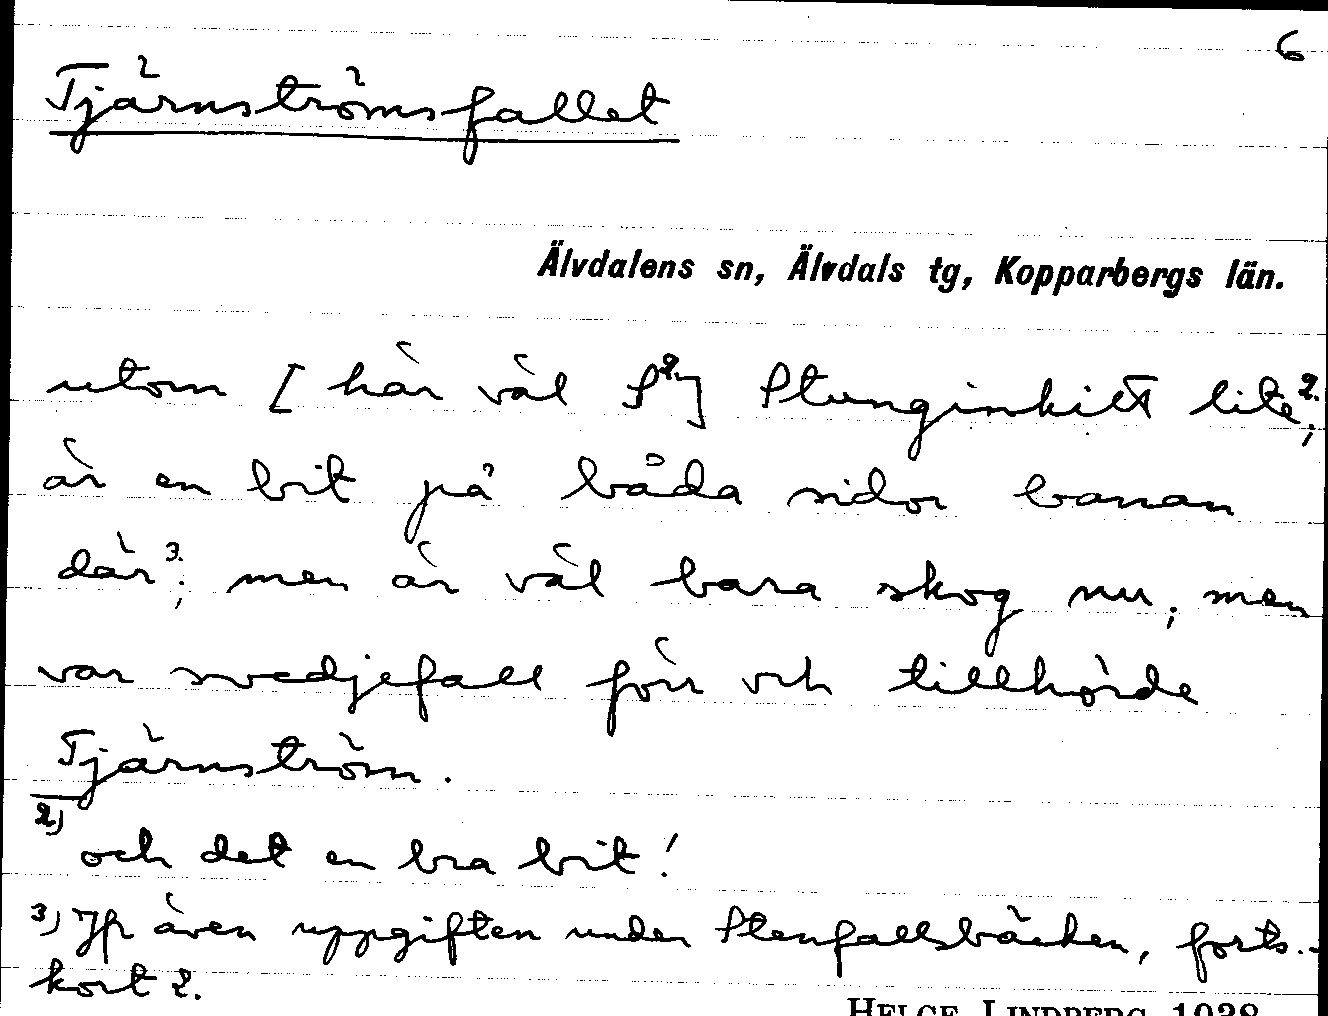 6
Tjärnströmsfallet
Älvdalens sn, Älvdals tg, Kopparbergs län.
utom [här väl S²⁾] lite²⁾;
är en bit på båda sidor banan
där³⁾; men är väl bara skog nu; men
var svedjefall förr och tillhörde
Tjärnström.
2) och det en bra bit!
3) Jfr även uppgiften under Stenfallsbäcken, forts.-
kort 2.
HELGE LINDBERG 1938